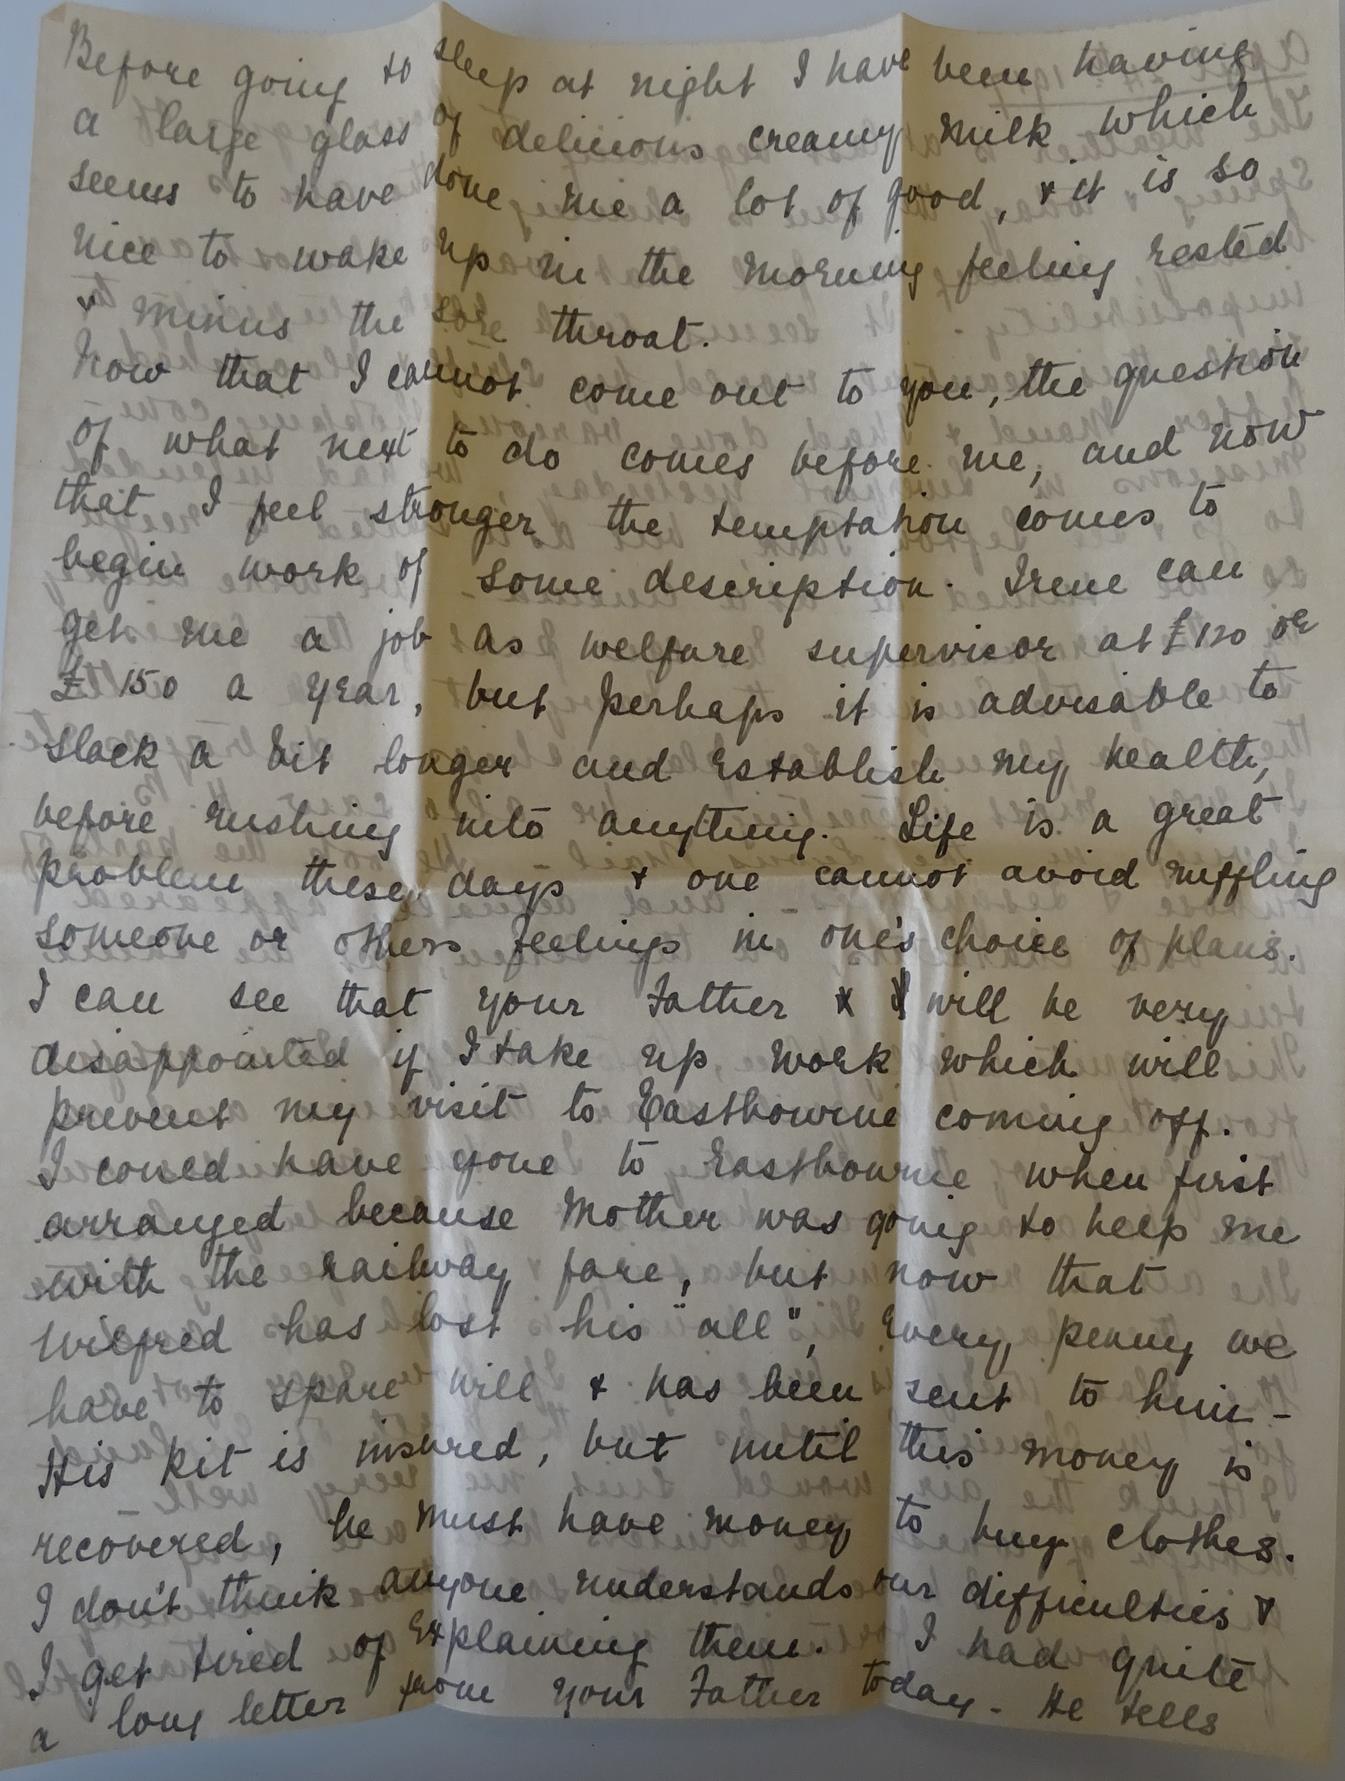 Before going to sleep at night I have been having
a large glass of delicious creamy milk which
seems to have done me a lot of good, & it is so
nice to wake up in the morning feeling rested
& minus the sore throat.
Now that I cannot come out to you, the question
of what next to do comes before me, and now
that I feel stronger the temptation comes to
begin work of some description. Irene can
get me a job as welfare supervisor at £120 or
£150 a year, but perhaps it is advisable to
slack a bit longer and establish my health,
before rushing into anything. Life is a great
problem these days & one cannot avoid ruffling
someone or others feelings in one's choice of plans.
I can see that your Father & I will be very
disappointed if I take up work which will
prevent my visit to Eastbourne coming off.
I could have gone to Eastbourne when first
arranged because Mother was going to help me
with the railway fare, but now that
Wilfred has lost his "all", every penny we
have to spare will & has been sent to him -
His kit is insured, but until this money is
recovered, he must have money to buy clothes.
I don't think anyone understands our difficulties &
I get tired of explaining them. I had quite
a long letter from your Father today - He tells